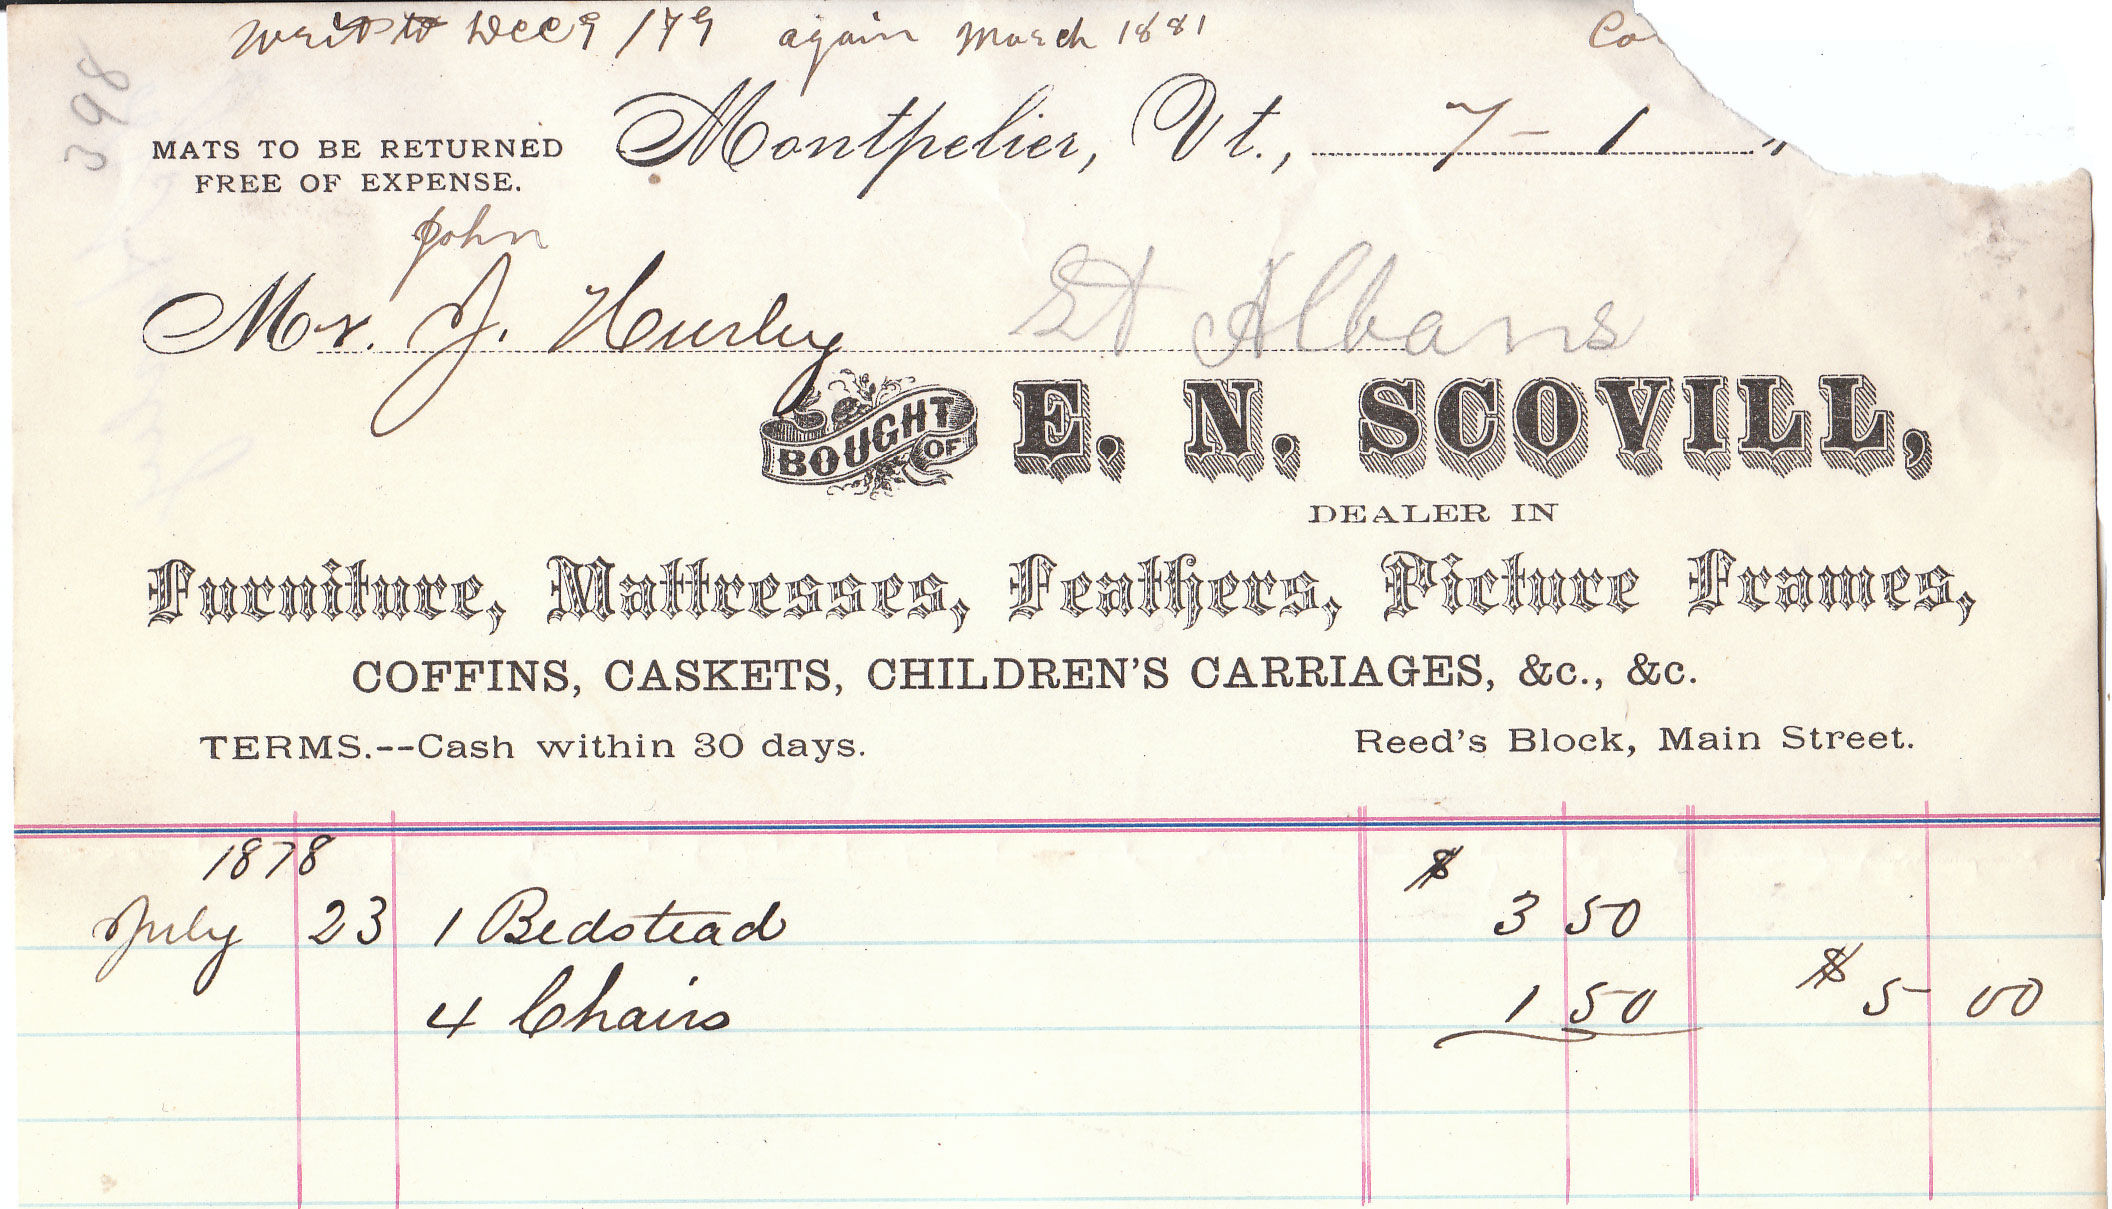 writ to Dec 9 /79 again March 1881 Co
398
Montpelier, Vt., 7-1 "
MATS TO BE RETURNED
FREE OF EXPENSE.
John
Mr. J. Hurley St Albans
BOUGHT OF E. N. SCOVILL,
DEALER IN
Furniture, Mattresses, Feathers, Picture Frames,
COFFINS, CASKETS, CHILDREN'S CARRIAGES, &c., &c.
TERMS.--Cash within 30 days. Reed's Block, Main Street.
1878 $
July 23 1 Bedstead 3 50
4 Chairs 1 50 $ 5 00